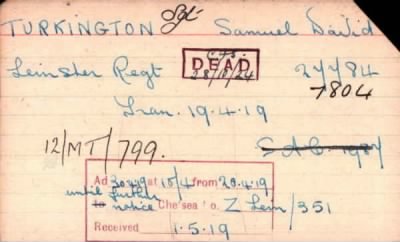 TURKINGTON Sgt Samuel David
DEAD
Leinster Regt 28/11/24 27784
7804
Tran. 19.4.19
12/MT/799.
Ad 30 at 15/4 from 20.4.19
until further
to notice Chelsea to. Z Lein/351
Received 1.5.19